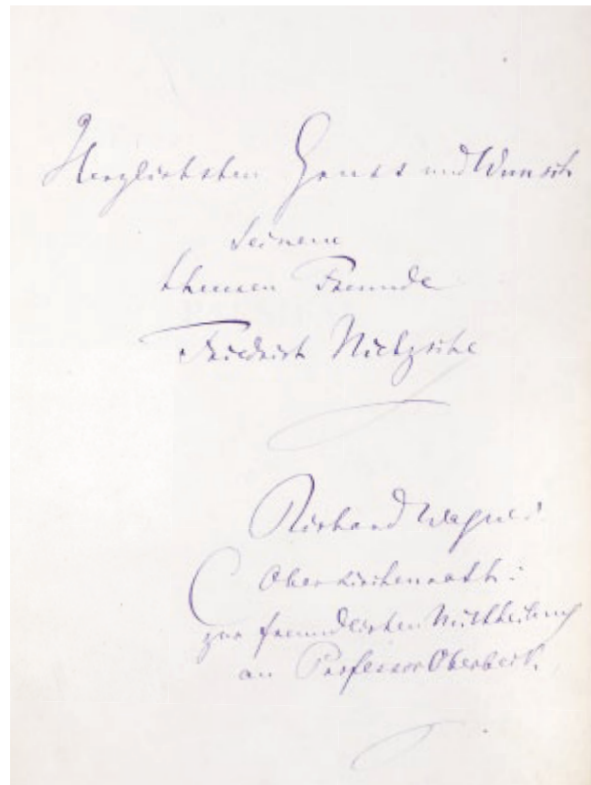 Herzlichsten Gruss und Wunsch
seinem
theuren Freunde
Friedrich Nietzsche
Richard Wagner
(Oberkirchenrath:
zur freundlichen Mittheilung
an Professor Overbeck.